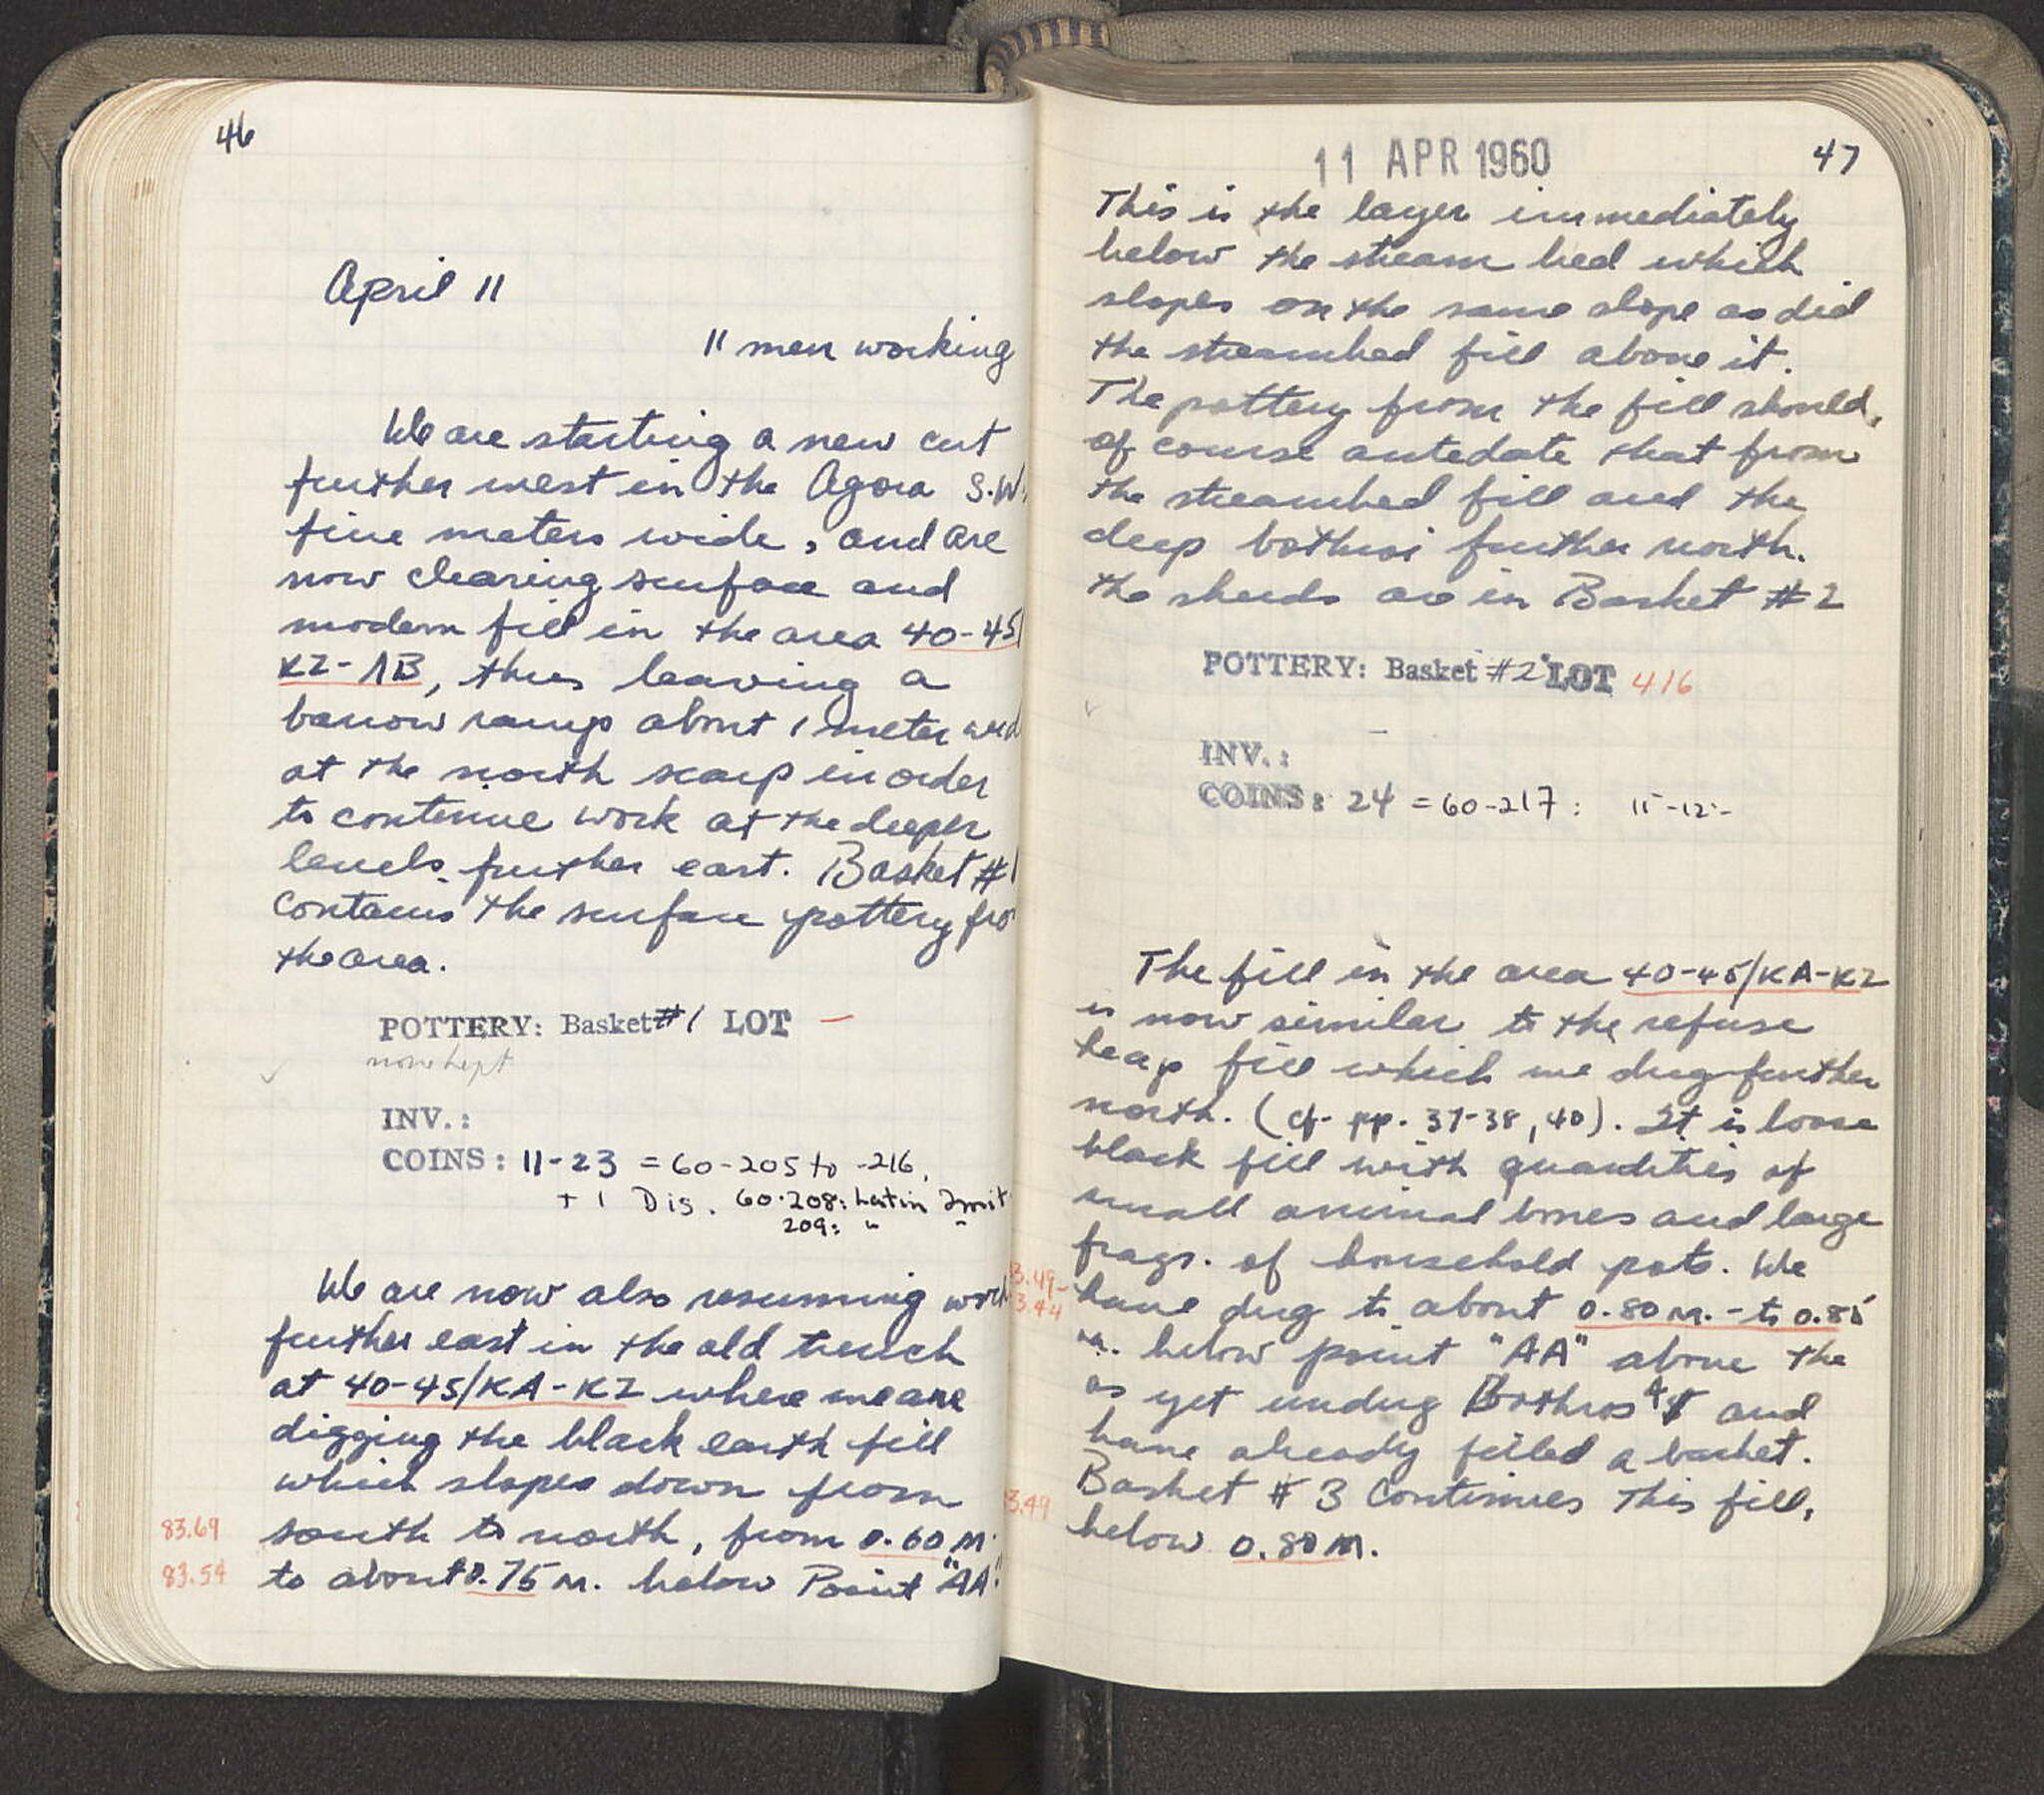 46
April 11
11 men working
We are starting a new cut
further west in the Agora S.W.
five meters wide, and are
now clearing surface and
modern fill in the area 40-45/
KZ-ΛB, thus leaving a
barrow ramp about 1 meter wid
at the north scarp in order
to continue work at the deeper
levels further east. Basket #1
contains the surface pottery fro
the area.
POTTERY: Basket #1 LOT —
none kept
INV.:
COINS: 11-23 = 60-205 to -216,
+ 1 Dis. 60-208: Latin Imit
209: "
We are now also resuming work
further east in the old trench
at 40-45/KA-KZ where we are
digging the black earth fill
which slopes down from
83.69 south to north, from 0.60 M.
83.54 to about 0.75 M. below Point "AA".
11 APR 1960
47
This is the layer immediately
below the stream bed which
slopes on the same slope as did
the streambed fill above it.
The pottery from the fill should,
of course antedate that from
the streambed fill and the
deep bothroi further north.
The sherds are in Basket #2
POTTERY: Basket #2 LOT 416
INV.: —
COINS: 24 = 60-217: 11-12-
The fill in the area 40-45/KA-KZ
is now similar to the refuse
heap fill which we dug further
north. (cf. pp. 37-38, 40). It is loose
black fill with quantities of
small animal bones and large
frags. of household pots. We
3.49-
3.44 have dug to about 0.80 M. - to 0.85
m. below point "AA" above the
as yet undug Bothros 4 and
have already filled a basket.
3.49 Basket #3 continues this fill,
below 0.80 M.